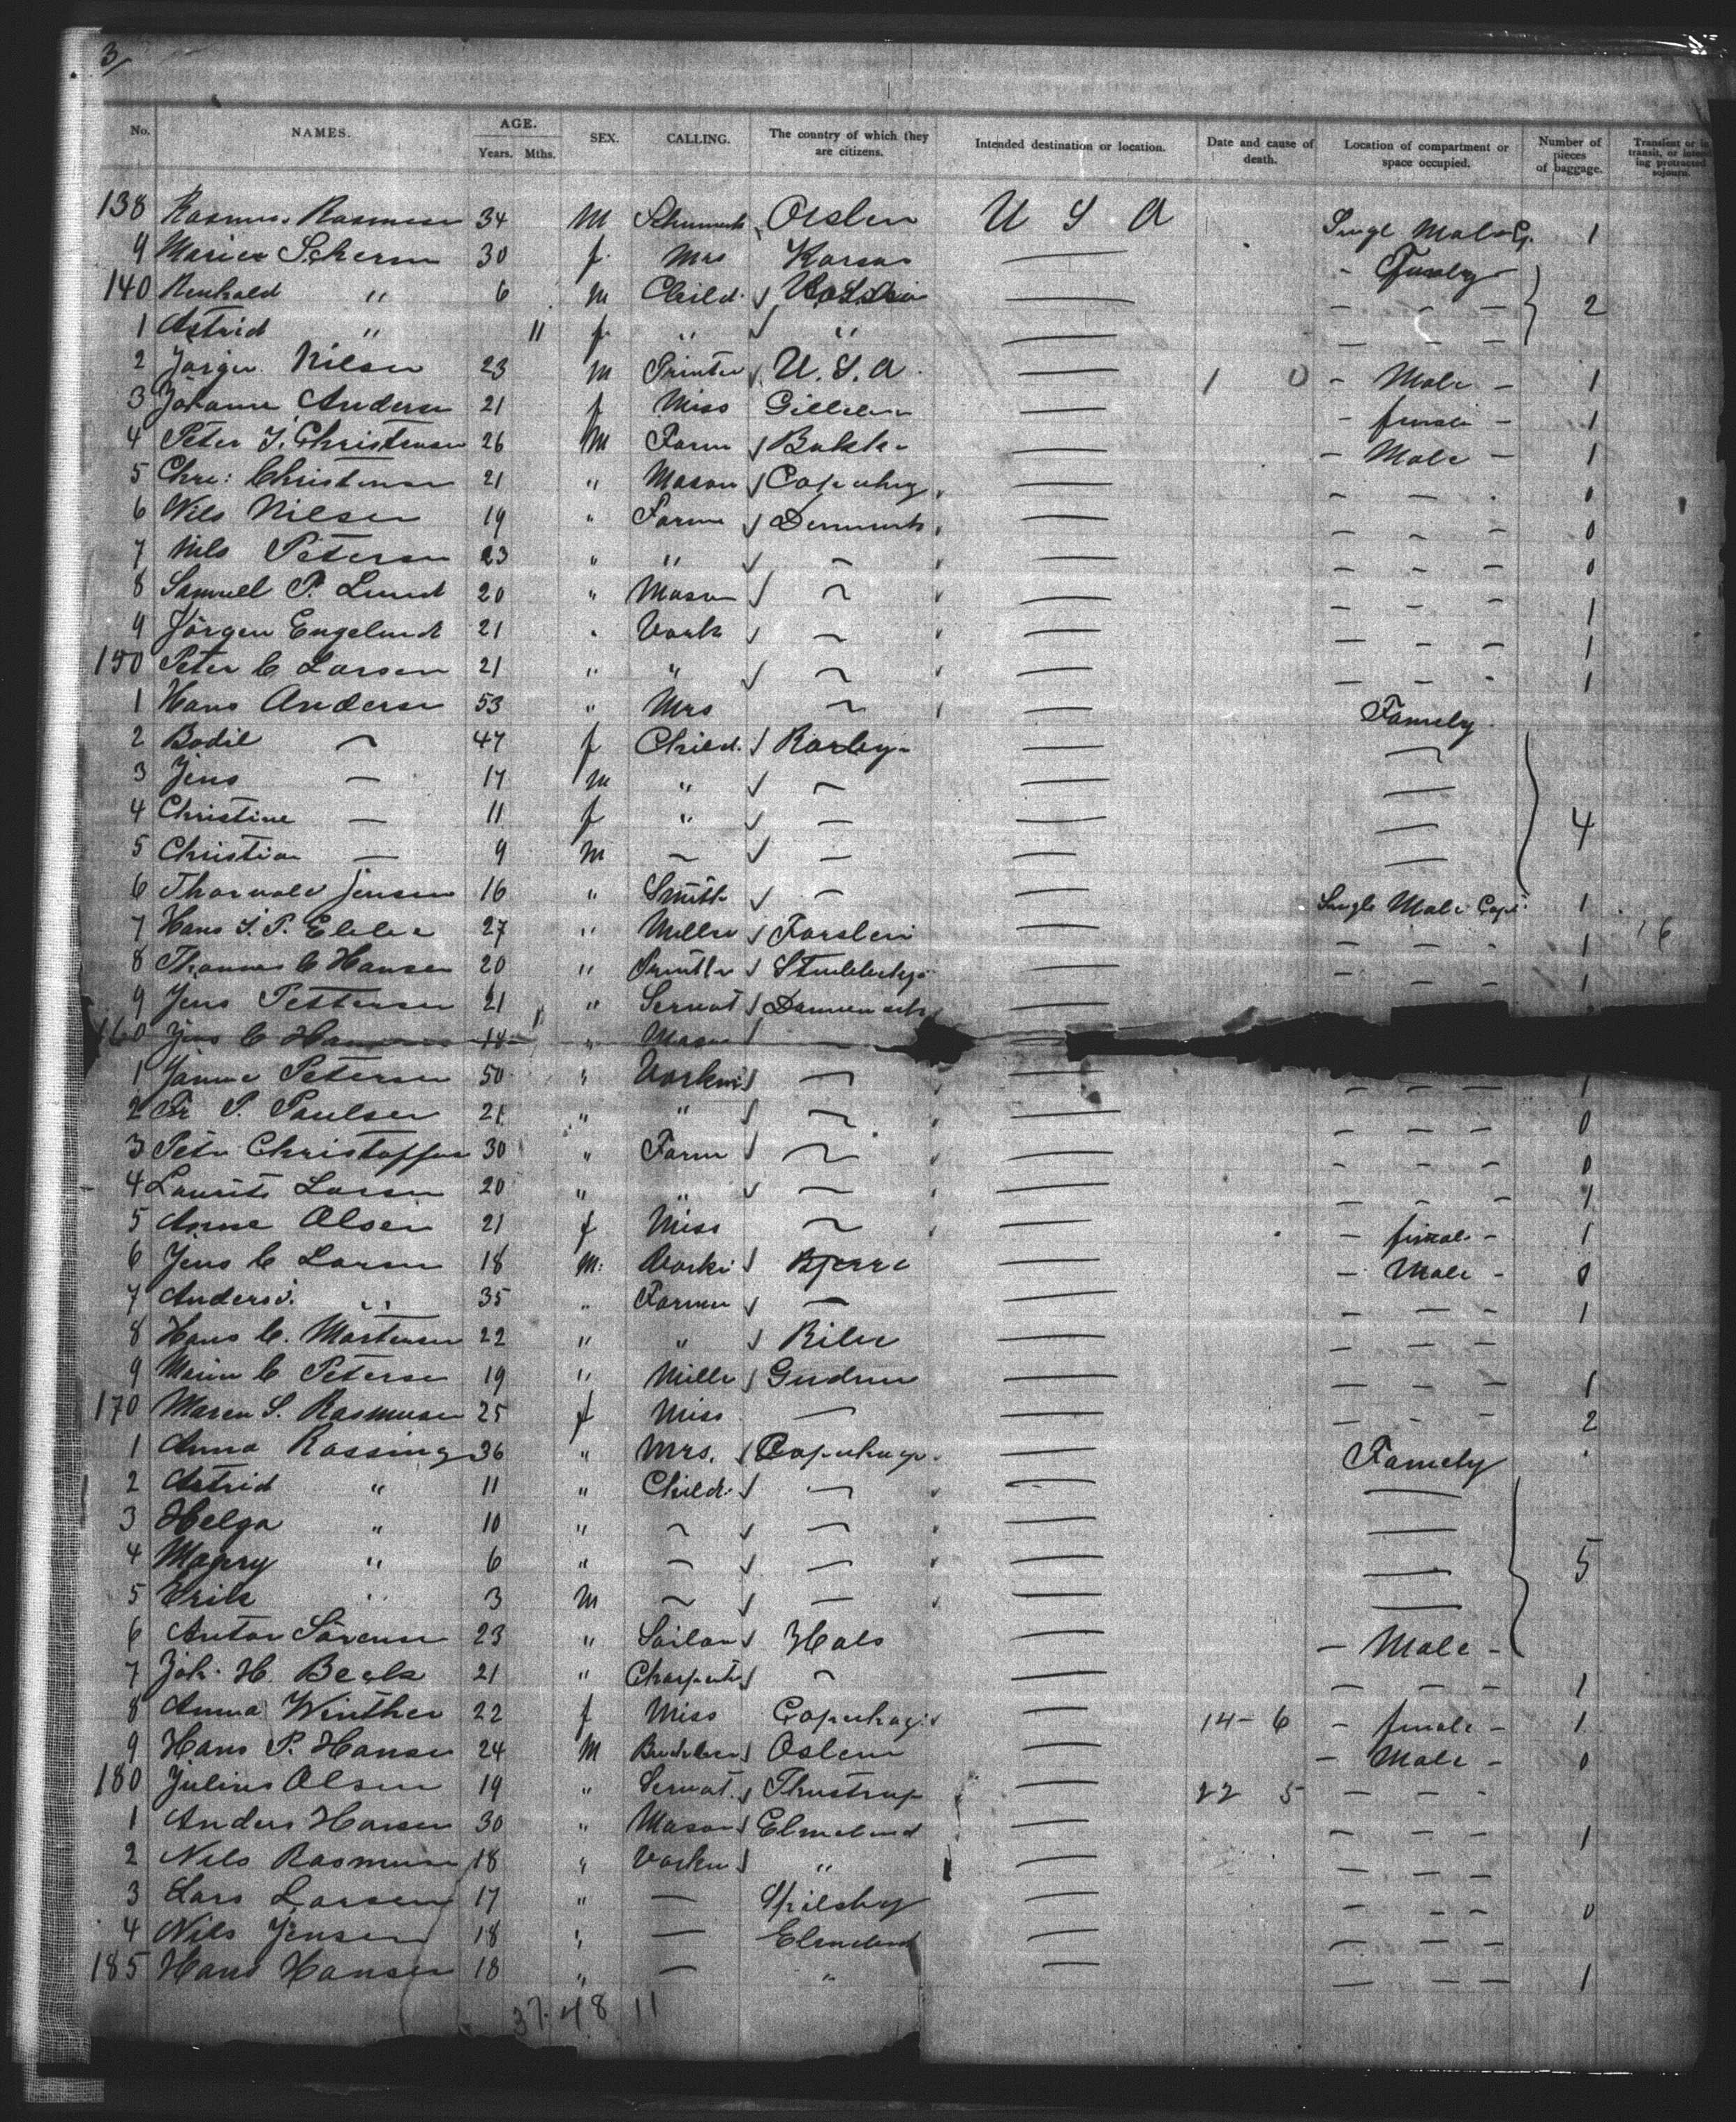 3/
No. NAMES. AGE. Years. Mths. SEX. CALLING. The country of which they are citizens. Intended destination or location. Date and cause of death. Location of compartment or space occupied. Number of pieces of baggage. Transient or in transit, or intending protracted sojourn.
138 Rasmus Rasmusen 34 M Oislen U S A Singl Male 1
9 30 f. Mrs Korsor — - Family -
140 " 6 M Child. — - - - 2
1 Astrid " 11 f. " " — - - -
2 Jorgen Nilsen 23 M Printer U. S. A. — 1 0 - Male - 1
3 Johanne Andersen 21 f Miss — - female - 1
4 Peter J. Christensen 26 M Farm — - Male - 1
5 Chre: Christensen 21 " Mason Copenhag — - - - 0
6 Nils Nilsen 19 " Farme Denmark — - - - 0
7 Nils Petersen 23 " " ~ — - - - 0
8 Samuell P. Lund 20 " Mason ~ — - - - 1
9 Jörgen Engelund 21 " Vork ~ — - - - 1
150 Peter C Larsen 21 " " ~ — - - - 1
1 Hans Andersen 53 " Mrs ~ — Famely
2 Bodil ~ 47 f Child. — —
3 Jens — 17 M " ~ — —
4 Christine — 11 f " — — — 4
5 Christian — 9 M ~ — — —
6 Thorvald Jensen 16 " Smith — — Single Male 1
7 Hans J. P. 27 " Miller — - - - 1 16
8 Thomas C Hansen 20 " — - - - 1
9 Jens Pettersen 21 " Servat Dannemark —
160 Jens C Hansen 14 " Mason —
1 Petersen 50 " ~ — - - - 1
2 Fr P. Paulsen 21 " " ~ — - - - 0
3 Petr Christoffer 30 " Farm ~ — - - - 0
4 Laurits Larsen 20 " " ~ — - - - 1
5 Anne Olsen 21 f Miss ~ — - female - 1
6 Jens C Larsen 18 M. Bjerre — - Male - 0
7 Anders " 35 " Farmer — — - - - 1
8 Hans C. Mortensen 22 " " — - - -
9 C Petersen 19 " Mille Gudme — - - - 1
170 Maren S. Rasmusen 25 f Miss — — - - - 2
1 Anna Rassing 36 " Mrs. Copenhagn — Famely
2 Astrid " 11 " Child. ~ — —
3 Helga " 10 " ~ ~ — —
4 " 6 " ~ — — — 5
5 Erik " 3 M ~ — — —
6 Anton Sörensen 23 " Sailor Hals — - Male -
7 Joh. H. Beck 21 " ~ — - - - 1
8 Anna Winther 22 f Miss Copenhag. — 14 - 6 - female - 1
9 Hans P. Hansen 24 M — - Male - 0
180 Julius Olsen 19 " Servat. Thustrup — 22 5 - - -
1 Anders Hansen 30 " Mason Elmelund — - - - 1
2 Nils Rasmusen 18 " Vorkm " — - - -
3 Lars Larsen 17 " — — - - - 0
4 Nils Jensen 18 " — Elmelund — - - -
185 Hans Hansen 18 " — " — - - - 1
37 48 11